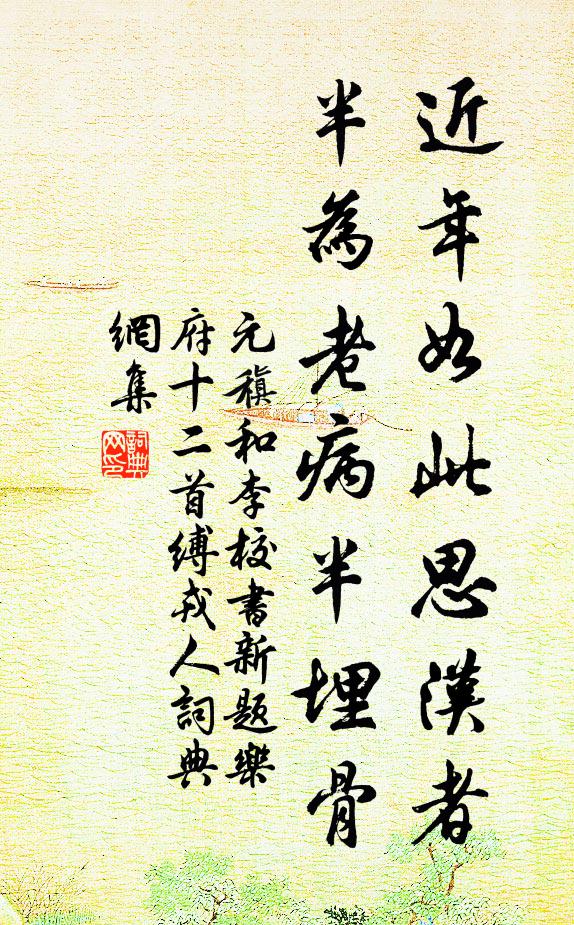 近年如此思漢者
半為老病半埋骨
元稹和李校書新題樂
府十二首縛戎人詞典
網集
詞典
网印